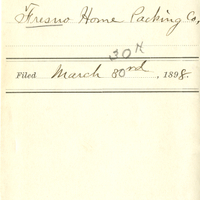 Fresno Home Packing Co,
30th
Filed March 30rd, 1898.